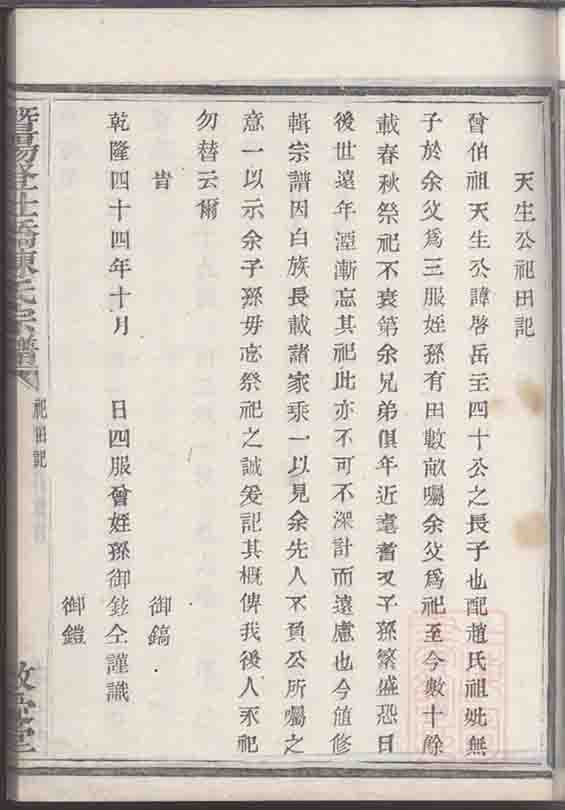 天生公祀田記
曾伯祖天生公諱啓岳圭四十公之長子也配趙氏祖妣無
子於余父爲三服姪孫有田數畝囑余父爲祀至今數十餘
載春秋祭祀不衰第余兄弟俱年近耄耋又子孫繁盛恐日
後世遠年湮漸忘其祀此亦不可不深計而遠慮也今値修
輯宗譜因白族長載諸家乘一以見余先人不負公所囑之
意一以示余子孫毋忘祭祀之誠爰記其概俾我後人永祀
勿替云爾
旹 御鎬
乾隆四十四年十月 日四服曾姪孫御鉉仝謹識
御鎧
暨陽 陳氏宗譜 祀田記